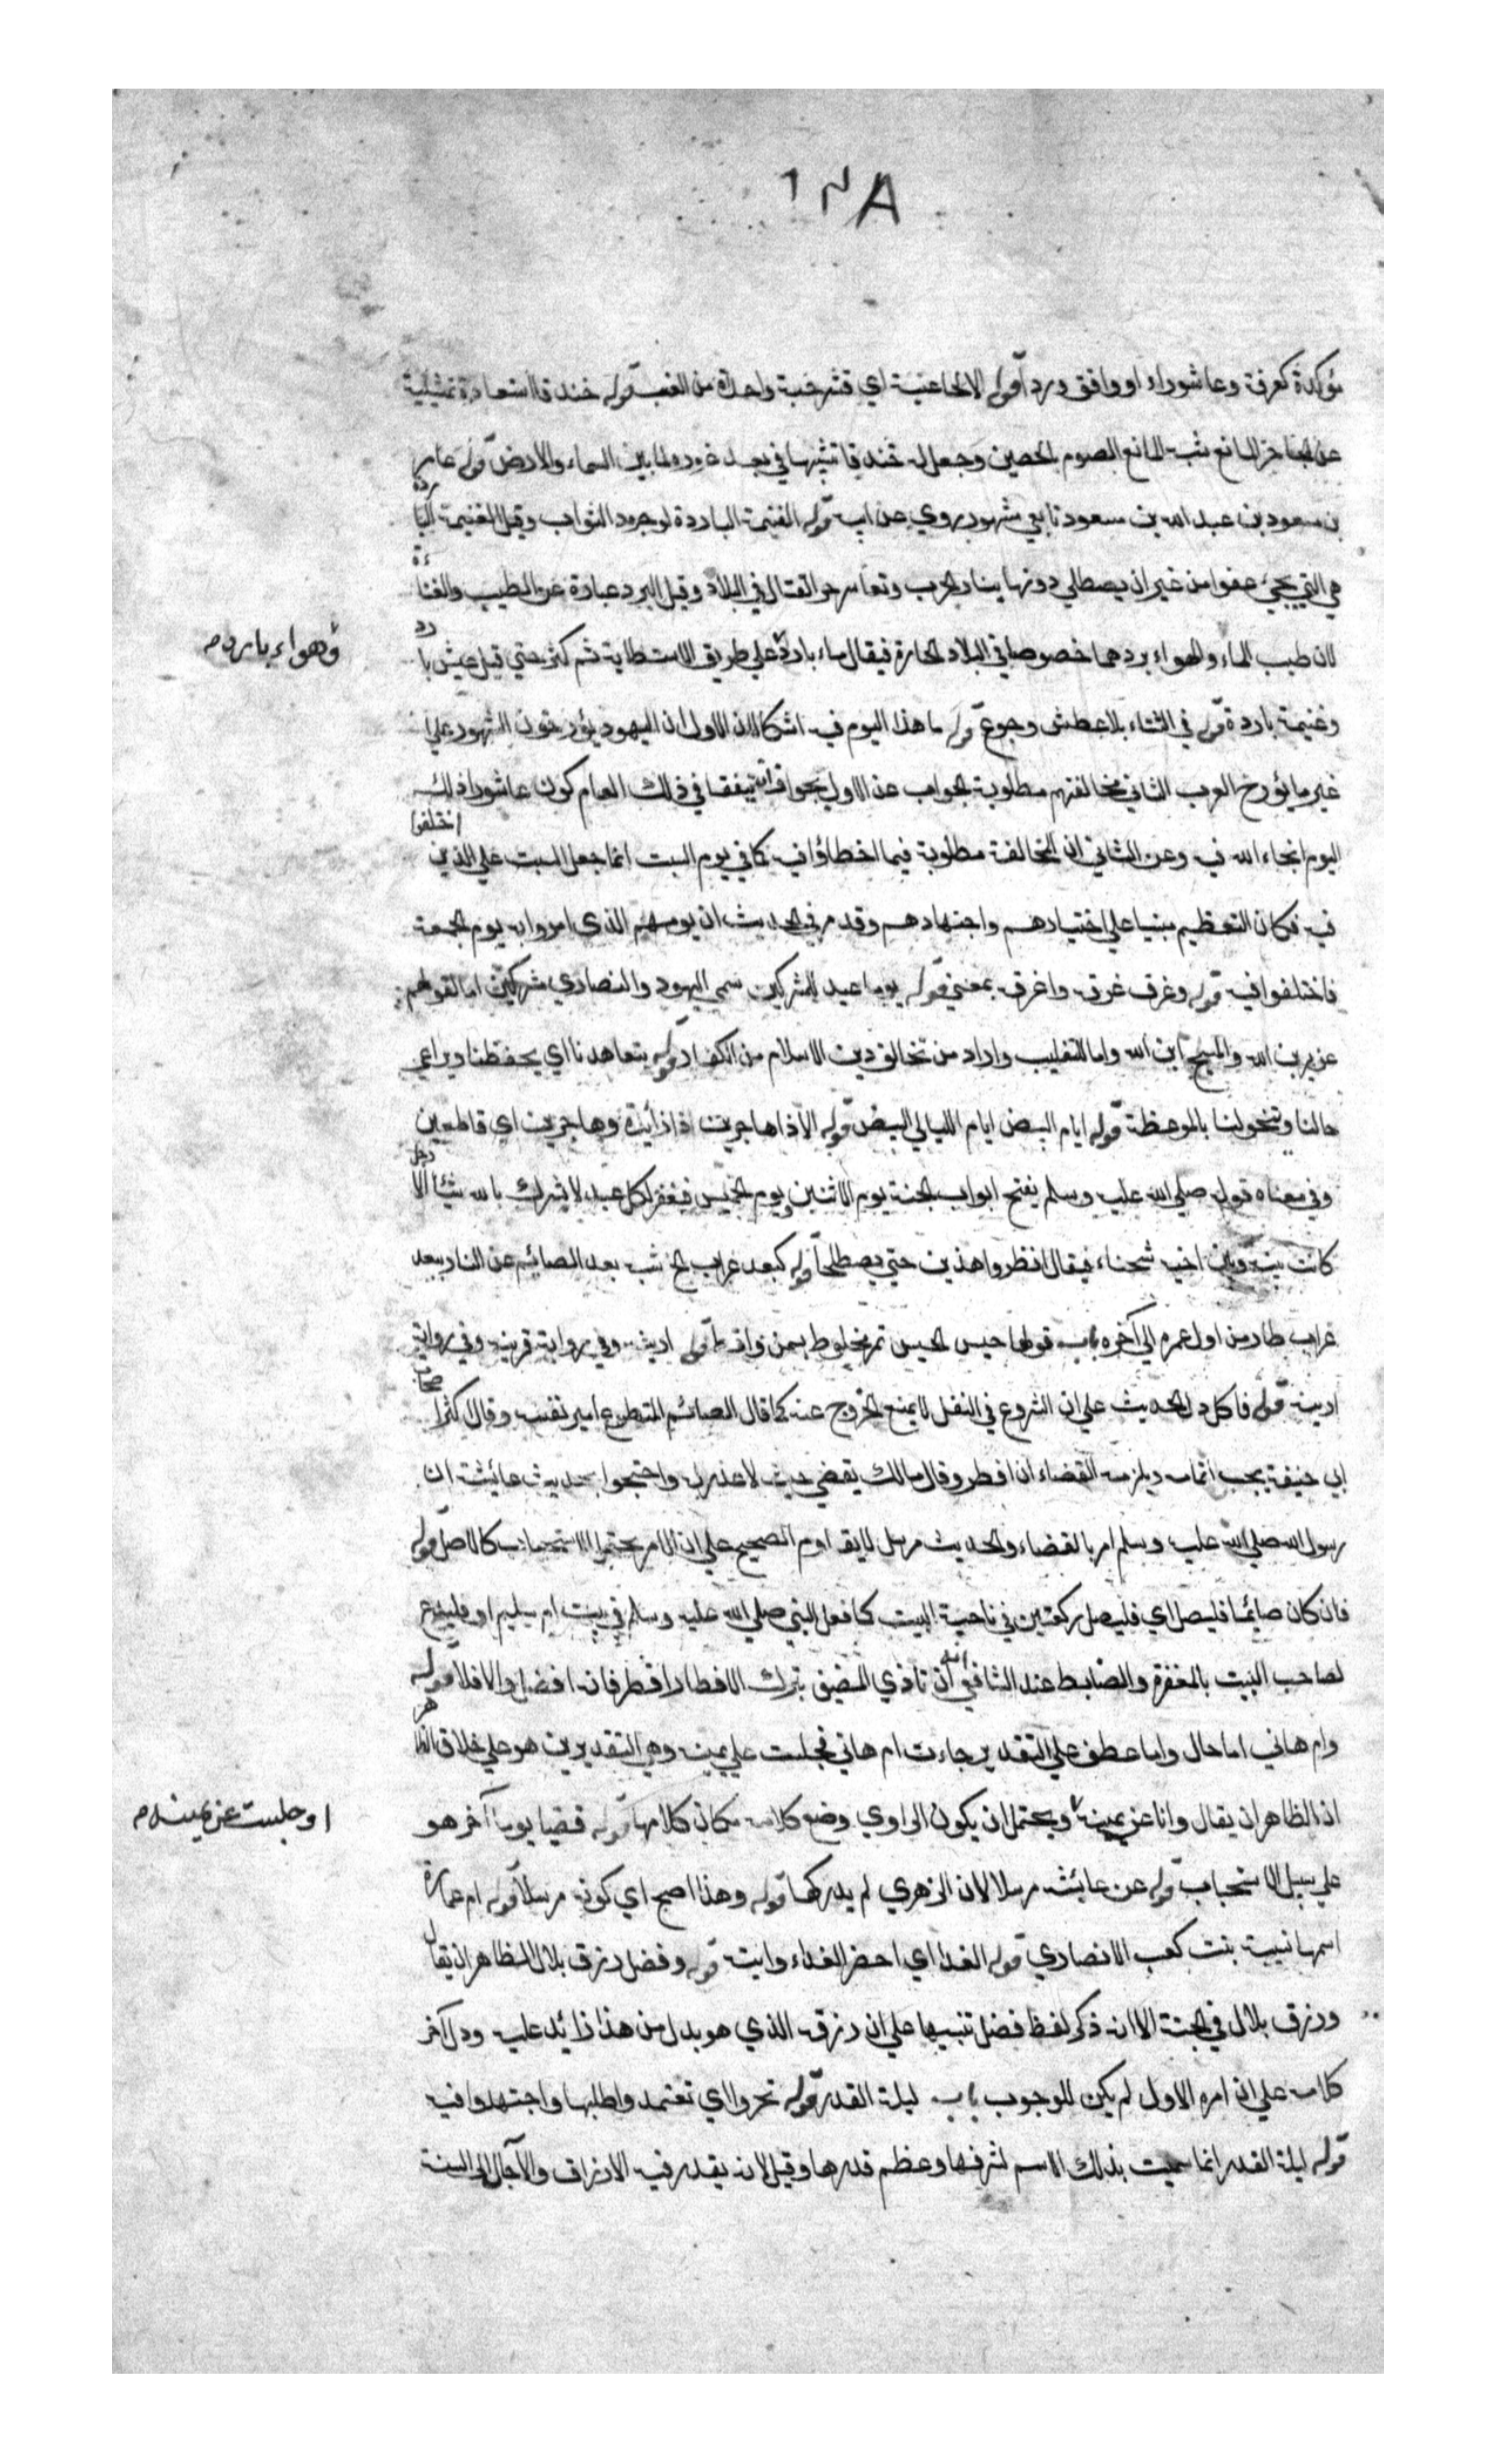 ١٢٨
مؤكدة كعرفة وعاشوراء او وافق وردا قوله الا لحاء عنبة اي قشر حبة واحدة من العنب قوله خندقا استعارة تمثيلية
عن الحاجز المانع شبه المانع الصوم بالحصين وجعل له خندقا تشبيها في بعد غوره لما بين السماء والارض قوله عامر
بن مسعود بن عبد الله بن مسعود تابعي مشهور يروي عن ابيه قوله الغنيمة الباردة لوجود الثواب وقيل الغنيمة الباردة
هي التي يجيء عفوا من غير ان يصطلي دونها بنار الحرب وتقاسر حر القتال في البلاد وقيل البرد عبارة عن الطيب والهناءة
لان طيب الماء والهواء بردهما خصوصا في البلاد الحارة فيقال ماء بارد على طريق الاستطابة ثم كثر حتى قيل عيش بارد
وهواء بارد م
وغنيمة باردة قوله في الشتاء بلا عطش وجوع قوله ما هذا اليوم فيه اشكالان الاول ان اليهود يؤرخون الشهور على
غير ما يؤرخ العرب الثاني مخالفتهم مطلوبة الجواب عن الاول يجوز انه يتفقا في ذلك العام كون عاشورا ذلك
اليوم انجاء الله فيه وعن الثاني ان المخالفة مطلوبة فيما اخطاؤا فيه كما في يوم السبت انما جعل السبت على الذين اختلفوا
فيه فكان التعظيم مبنيا على اختيارهم واجتهادهم وقد مر في الحديث ان يومهم الذي امروا به يوم الجمعة
فاختلفوا فيه قوله وغرق غرق واغرق بمعنى قوله يوما عيد للمشركين سمى اليهود والنصارى مشركين اما لقولهم
عزير بن الله والمسيح ابن الله واما للتغليب واراد من تخالف دين الاسلام من الكفار قوله يتعاهدنا اي يحفظنا ويراعي
حالنا وتخولنا بالموعظة قوله ايام البيض ايام الليالي البيض قوله الا ذا هاجرين ذا زائدة وهاجرين اي قاطعين
وفي معناه قوله صلى الله عليه وسلم يفتح ابواب الجنة يوم الاثنين ويوم الخميس فيغفر لكل عبد لا يشرك بالله شيئا الا رجل
كانت بينه وبين اخيه شحناء فيقال انظروا هذين حتى يصطلحا قوله كبعد غراب الخ شبه بعد الصائم عن النار ببعد
غراب طار من اول عمره الى آخره باب قولها حيس الحيس تمر مخلوط بسمن واقط قوله ارينيه وفي رواية قربيه وفي رواية
ادنيه قوله فاكل دل الحديث على ان الشروع في النفل لا يمنع الخروج عنه كما قال الصائم المتطوع امير نفسه وقال اكثر اصحاب
ابي حنيفة يجب اتمامه ويلزمه القضاء ان افطر وقال مالك يقضي حيث لا عذر له واحتجوا بحديث عائشة ان
رسول الله صلى الله عليه وسلم امر بالقضاء والحديث مرسل لا يقاوم الصحيح على ان الامر يحتمل الاستحباب كالاصل قوله
فان كان صائما فليصل اي فليصل ركعتين في ناحية البيت كما فعل النبي صلى الله عليه وسلم في بيت ام سليم او فليدع
لصاحب البيت بالمغفرة والضابط عند الشافعي انه ان تاذى المضيف بترك الافطار افطر فانه افضل والا فلا قوله
وام هاني اما حال واما عطف على التقدير جاءت ام هاني فجلست على يمينه وفي التقديرين هو على خلاف الظاهر
اذ الظاهر ان يقال وانا عن يمينه ويحتمل ان يكون الراوي وضع كلامه مكان كلامها قوله قضيا يوما آخر هو
او جلست عن يمينه م
على سبيل الاستحباب قوله عن عائشة مرسلا لان الزهري لم يدركها قوله وهذا اصح اي كونه مرسلا قوله ام عمارة
اسمها نسيبة بنت كعب الانصاري قوله الغدا اي احضر الغداء وايت قوله وفضل رزق بلال الظاهر ان يقال
ورزق بلال في الجنة الا انه ذكر لفظ فضل تنبيها على ان رزقه الذي هو بدل من هذا زائد عليه ودل آخر
كلامه على ان امره الاول لم يكن للوجوب باب ليلة القدر قوله تحروا اي تعتمد واطلبها واجتهدوا فيه
قوله ليلة القدر انما سميت بذلك الاسم لشرفها وعظم قدرها وقيل لانه يقدر فيه الارزاق والآجال الى السنة